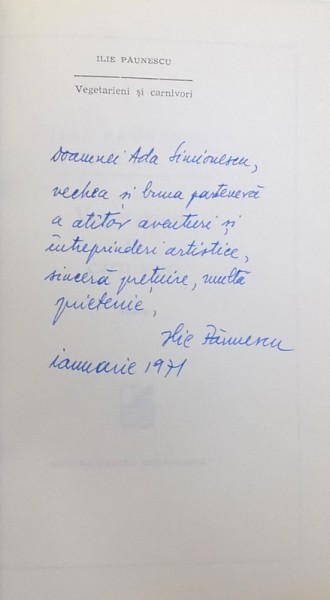 ILIE PĂUNESCU
Vegetarieni și carnivori
Doamnei Ada Simionescu,
vechea și buna parteneră
a atîtor aventuri și
întreprinderi artistice,
sinceră prețuire, multă
prietenie,
Ilie Păunescu
ianuarie 1971